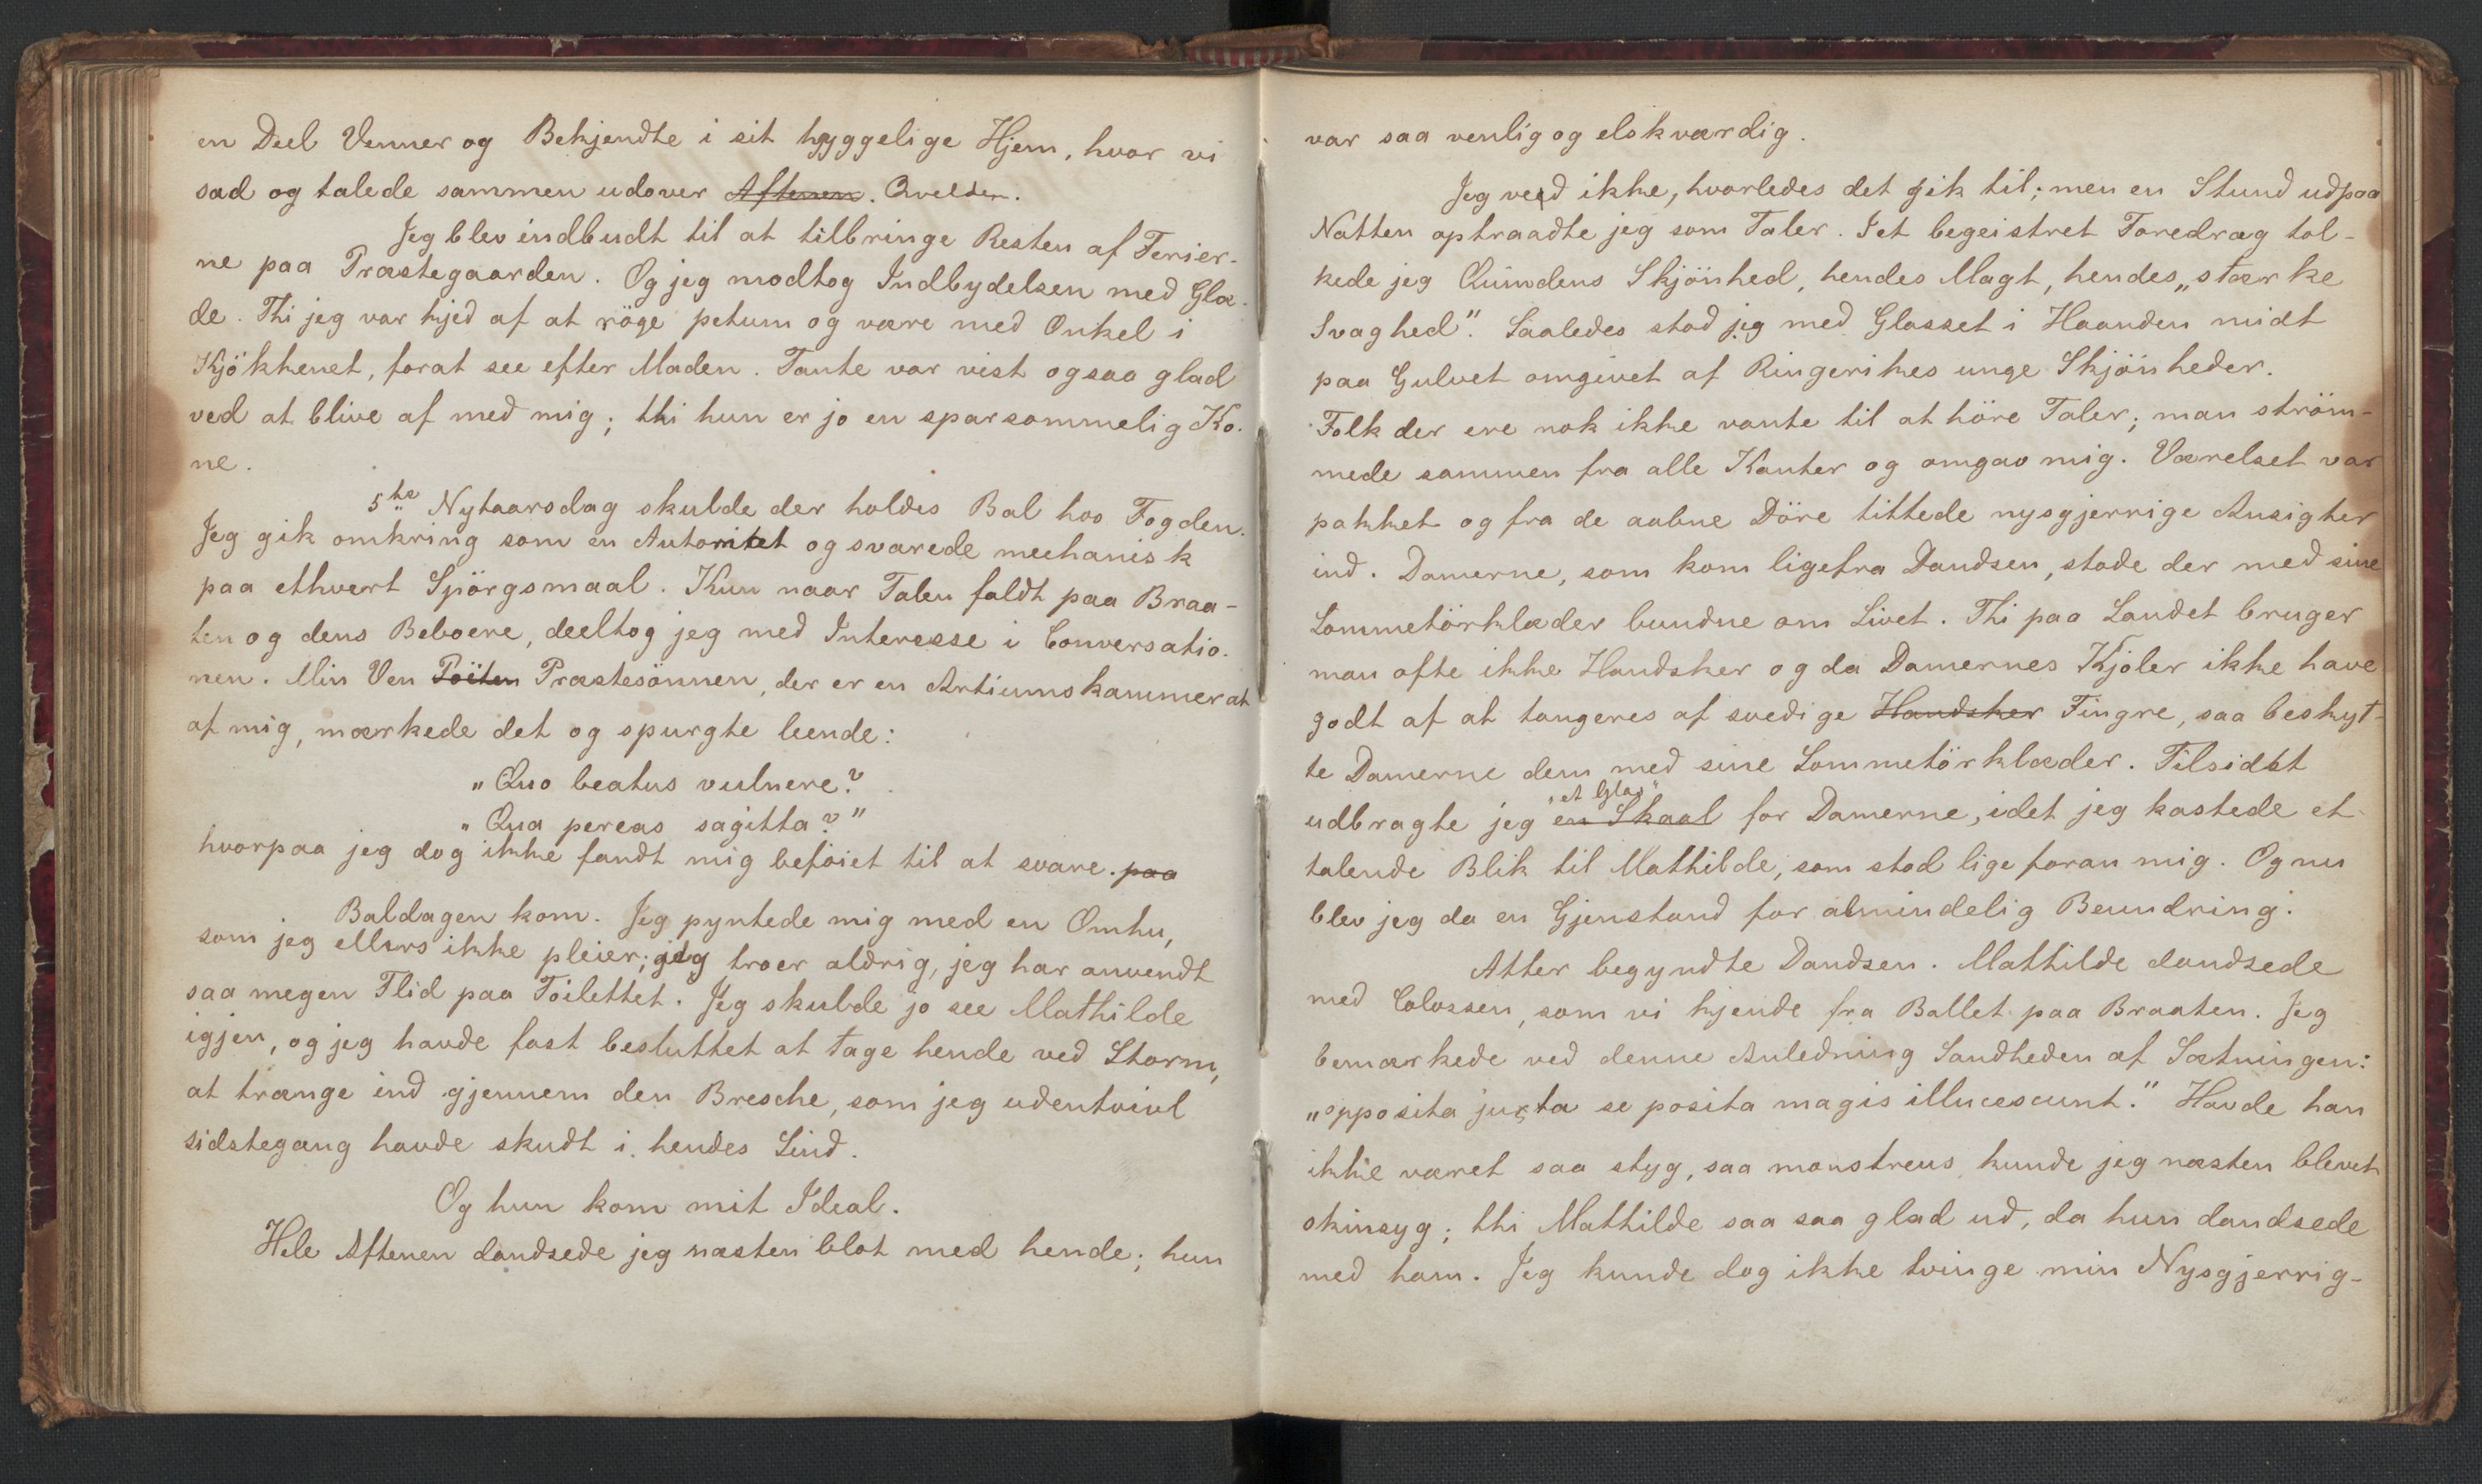 en Deel Venner og Bekjendte i sit hyggelige Hjem, hvor vi
sad og talede sammen udover Aftenen. Qvelden.
Jeg blev indbudt til at tilbringe Resten af Ferier-
ne paa Præstegaarden. Og jeg modtog Indbydelsen med Glæ-
de. Thi jeg var kjed af at röge petum og være med Onkel i
Kjökkenet, forat see efter Maden. Tante var vist ogsaa glad
ved at blive af med mig; thi hun er jo en sparsommelig Ko-
ne.
5te Nytaarsdag skulde der holdes Bal hos Fogden.
Jeg gik omkring som en Automat og svarede mechanisk
paa ethvert Spörgsmaal. Kun naar Talen faldt paa Braa-
ten og dens Beboere, deeltog jeg med Interesse i Conversatio-
nen. Min Ven Poëten Præstesönnen, der er en Artiumskammerat
af mig, mærkede det og spurgte leende:
"Quo beatus vulnere?
"Qua pereas sagitta?"
hvorpaa jeg dog ikke fandt mig beföiet til at svare. paa
Baldagen kom. Jeg pyntede mig med en Omhu,
som jeg ellers ikke pleier; jeg troer aldrig, jeg har anvendt
saa megen Flid paa Toilettet. Jeg skulde jo see Mathilde
igjen, og jeg havde fast besluttet at tage hende ved Storm,
at trænge ind gjennem den Bresche, som jeg udentvivl
sidstegang havde skudt i hendes Sind.
Og hun kom mit Ideal.
Hele Aftenen dandsede jeg næsten blot med hende; hun
var saa venlig og elskværdig.
Jeg veed ikke, hvorledes det gik til; men en Stund udpaa
Natten optraadte jeg som Taler. I et begeistret Foredrag tol-
kede jeg Quindens Skjönhed, hendes Magt, hendes "stærke
Svaghed". Saaledes stod jeg med Glasset i Haanden midt
paa Gulvet omgivet af Ringerikes unge Skjönheder.
Folk der ere nok ikke vante til at höre Taler; man ström-
mede sammen fra alle Kanter og omgav mig. Værelset var
pakket og fra de aabne Döre tittede nysgjerrige Ansigter
ind. Damerne, som kom ligefra Dandsen, stode der med sine
Lommetörklæder bundne om Livet. Thi paa Landet bruger
man ofte ikke Handsker og da Damernes Kjoler ikke have
godt af at tangeres af svedige Handsker Fingre, saa beskyt-
te Damerne dem med sine Lommetörklæder. Tilsidst
"et Glas"
udbragte jeg en Skaal for Damerne, idet jeg kastede et
talende Blik til Mathilde, som stod lige foran mig. Og nu
blev jeg da en Gjenstand for almindelig Beundring.
Atter begyndte Dandsen. Mathilde dandsede
med Colossen, som vi kjende fra Ballet paa Braaten. Jeg
bemærkede ved denne Anledning Sandheden af Sætningen:
"opposita juxta se posita magis illucescunt." Havde han
ikke været saa styg, saa monstreus, kunde jeg næsten blevet
skinsyg; thi Mathilde saa saa glad ud, da hun dandsede
med ham. Jeg kunde dog ikke tvinge min Nysgjerrig-